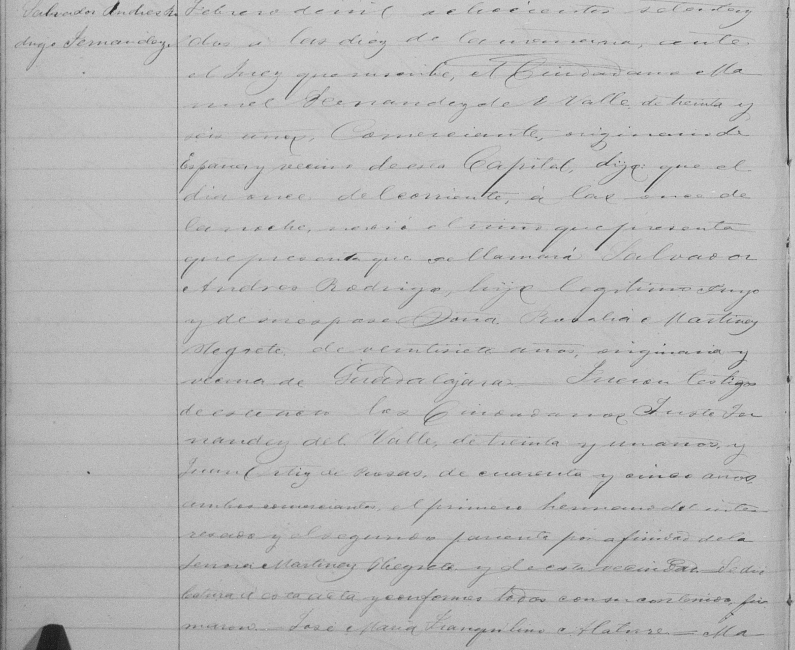 Salvador Andres Ro
drigo Fernandez.
Febrero de mil ochocientos setenta y
dos a las diez de la mañana, ante
el Juez que suscribe, el Ciudadano Ma
nuel Fernandez del Valle, de treinta y
seis anos, Comerciante, originario de
España y vecino de esta Capital, dijo que el
dia once del corriente, á las once de
la noche, nació el niño que presenta
que presenta que se llamará Salvador
Andres Rodrigo, hijo legitimo suyo
y de su esposa Doña Rosalia Martinez
Negrete, de veintisiete años, originaria y
vecina de Guadalajara. Fueron testigos
de este acto los Ciudadanos Justo Fer
nandez del Valle, de treinta y un anos, y
Juan Ortiz de Rosas, de cuarenta y cinco años
ambos comerciantes, el primero hermano del inte
resado y el segundo pariente por afinidad de la
Senora Martinez Negrete y de esta vecindad. Se dio
lectura á esta acta y conformes todos con su contenido, fir
maron. — José Maria Tranquilino Alatorre. — Ma